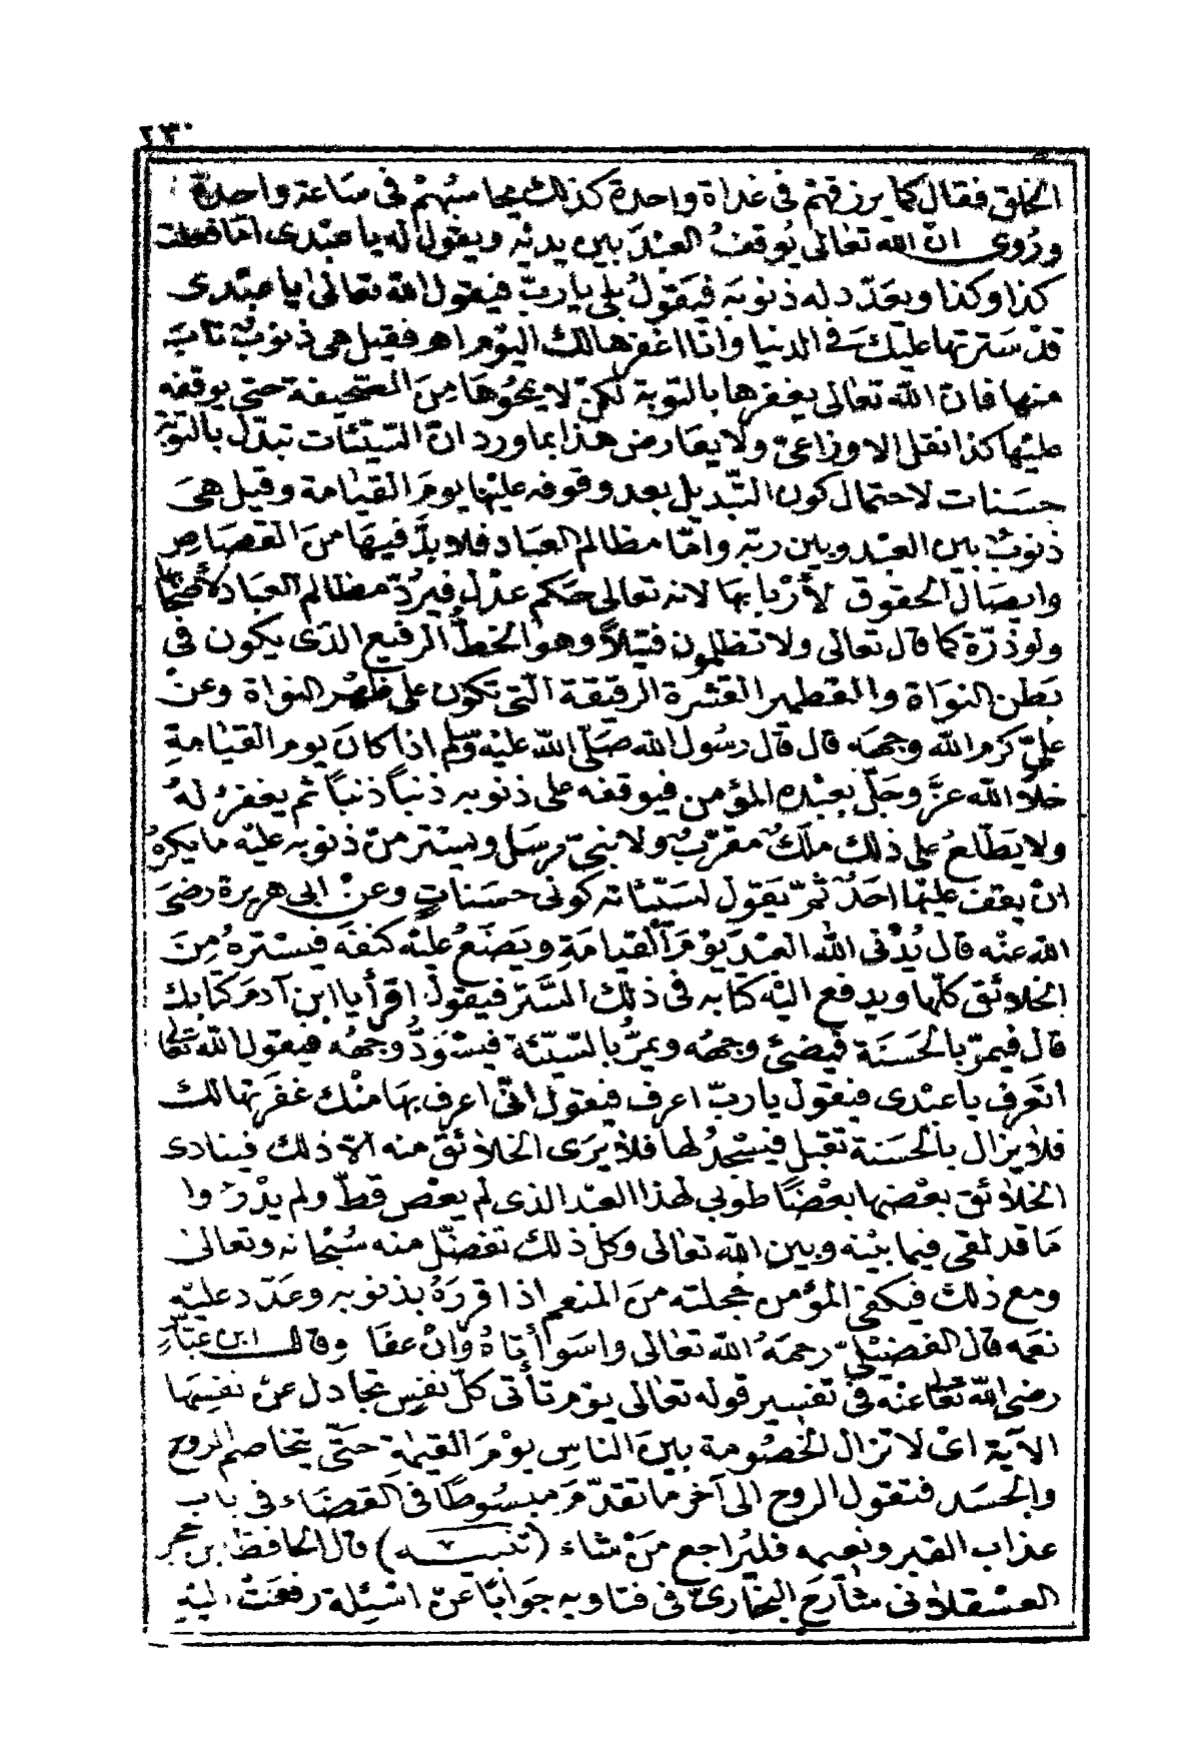 ٢٣٠
الخلق فقال كما يرزقهم في غداة واحدة كذلك يحاسبهم في ساعة واحدة
وروى ان الله تعالى يُوقفُ العبدَ بين يديْه ويقول له يا عبْدى امّا فعلت
كذا وكذا ويعدّد له ذنوبَه فيَقولُ بلى يا ربّ فيقول الله تعالى يا عبْدى
قدْ سَترتها عليْك في الدنيا وانا اغفرها لك اليوْم اهـ فقيل هي ذنوبٌ تابَ
منها فان الله تعالى يغفرها بالتوبة لكنْ لا يمحُوهَا منَ الصّحيفة حتى يوقفه
عليْها كذا نقل الاوزاعىّ ولا يعارض هذا بما ورد انّ السّيّئات تبدّل بالتوبَة
حسَنات لاحتمال كون التّبديل بعد وقوفه عليْها يومَ القيٰامة وقيل هىَ
ذنوبٌ بين العبْد وبين ربّه وامّا مظالم العباد فلا بدَّ فيهَا منَ القصَاص
وايصَال الحقوق لأرْبابهَا لانه تعالى حكم عدْل فيَرُدّ مظالم العبَاد لأصْحَابها
ولو ذرّة كما قال تعالى ولا تظلمون فتيلاً وهو الخطُّ الرفيع الذى يكون في
بَطن النوَاة والقطمير القشْرة الرقيقة الّتى تكون على ظهْر النواة وعنْ
علىّ كرم الله وجهَه قال قال رسُول الله صَلّى الله عليْه وسلّم اذا كانَ يوم القيٰامةِ
خلاَ الله عزَّ وجَلَّ بعبْده المؤمن فيوقفه على ذنوبه ذنبًا ذنبًا ثم يغفرُ لهُ
ولا يَطّلعُ على ذلك ملَكٌ مقرّبٌ ولا نبىّ مرسَل ويسْتر منْ ذنوبه عليْه ما يكرهُ
انْ يقف عليْها احَدٌ ثمّ يَقول لسَيّئاته كونى حسَناتٍ وعنْ ابى هريرة رضىَ
الله عنْه قال يُدْنى الله العبْدَ يوْمَ القيامَةِ ويَضَعُ عليْه كنفَه فيسْترهُ مِنَ
الخلائق كلّها ويدفع اليْه كتابه في ذلك السَّتر فيقول اقرأ يا ابن آدم كتابك
قال فيمرّ بالحَسَنَة فيَضئ وجهُه ويمرُّ بالسّيّئة فيسْوَدُّ وجهُه فيَقول الله تعالى
اتَعرف يا عبْدى فيَقول يا ربّ اعرف فيقول انّى اعرف بهَا منْك غفَرتها لك
فلا يزال بالحَسَنة تقبل فيَسْجدُ لها فلا يرَى الخلائق منه الاّ ذلك فينادى
الخلائق بعْضها بعْضًا طوبى لهذا العبْد الذى لم يعْص قطّ ولم يدْروا
مَا قد لقى فيما بيْنه وبين الله تعالى وكل ذلك تفضّل منه سُبْحانه وتعالى
ومع ذلك فيكفى المؤمن خجلته منَ المنعم اذا قررَهُ بذنوبه وعَدّد عليْه
نعَمه قال الفضيْل رحمَهُ الله تعالى واسَوأتاهُ وانْ عفَا وقال ابن عبّاس
رضى الله تعالى عنْه في تفسير قوله تعالى يوْم تأتى كلّ نفسٍ تجادل عنْ نفسهَا
الآية اىْ لا تزال الخصُومة بينَ الناس يوْمَ القيٰمةِ حتّى يتخاصم الروح
والجسَد فتقول الروح الى آخر ما تقدّمَ مبسُوطًا في القضَاء في باب
عذاب القبر ونعيمه فليُراجع منْ شاء (تنبيـــه) قال الحافظ بن حجر
العسْقلانى شارحَ البخارىّ في فتاويه جوابًا عنْ اسْئلة رفعَتْ اليْه